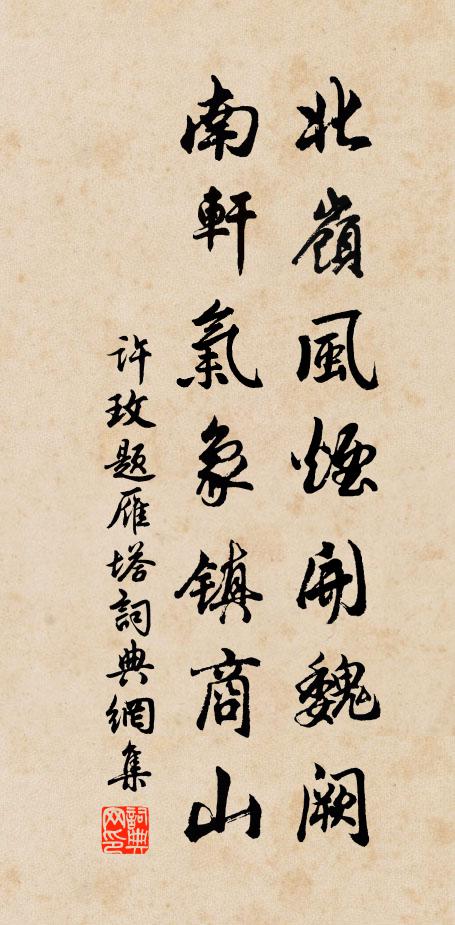 北嶺風煙開魏闕
南軒氣象鎮商山
许玫題雁塔詞典網集
詞典
网印